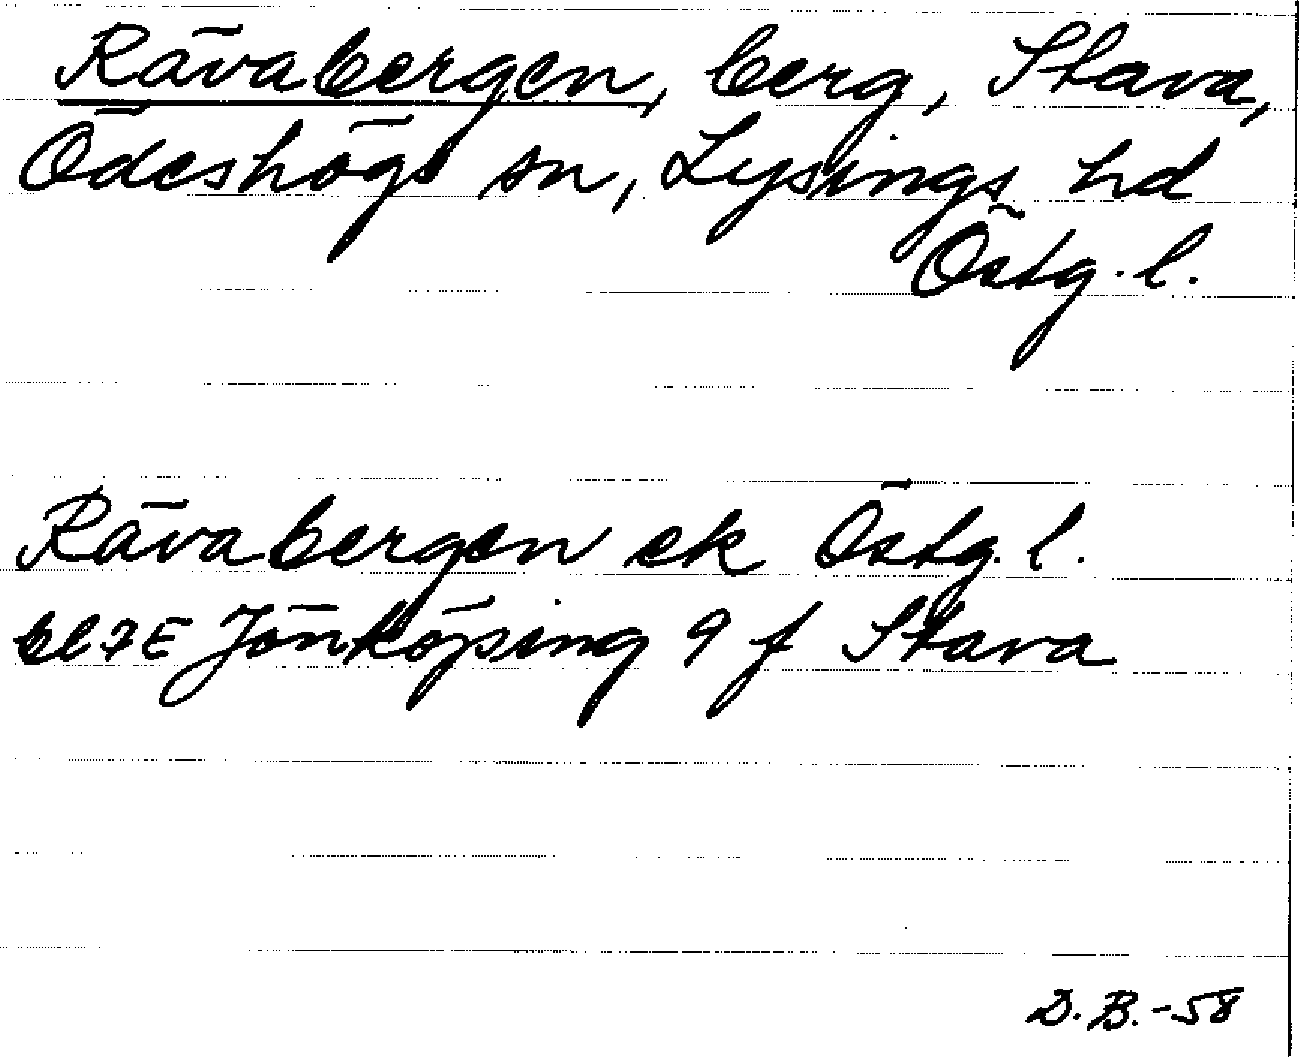 Rävabergen, berg, Stava,
Ödeshögs sn, Lysings hd
Östg. l.
Rävabergen ek Östg. l.
bl 7E Jönköping 9 f Stava
D. B. -58